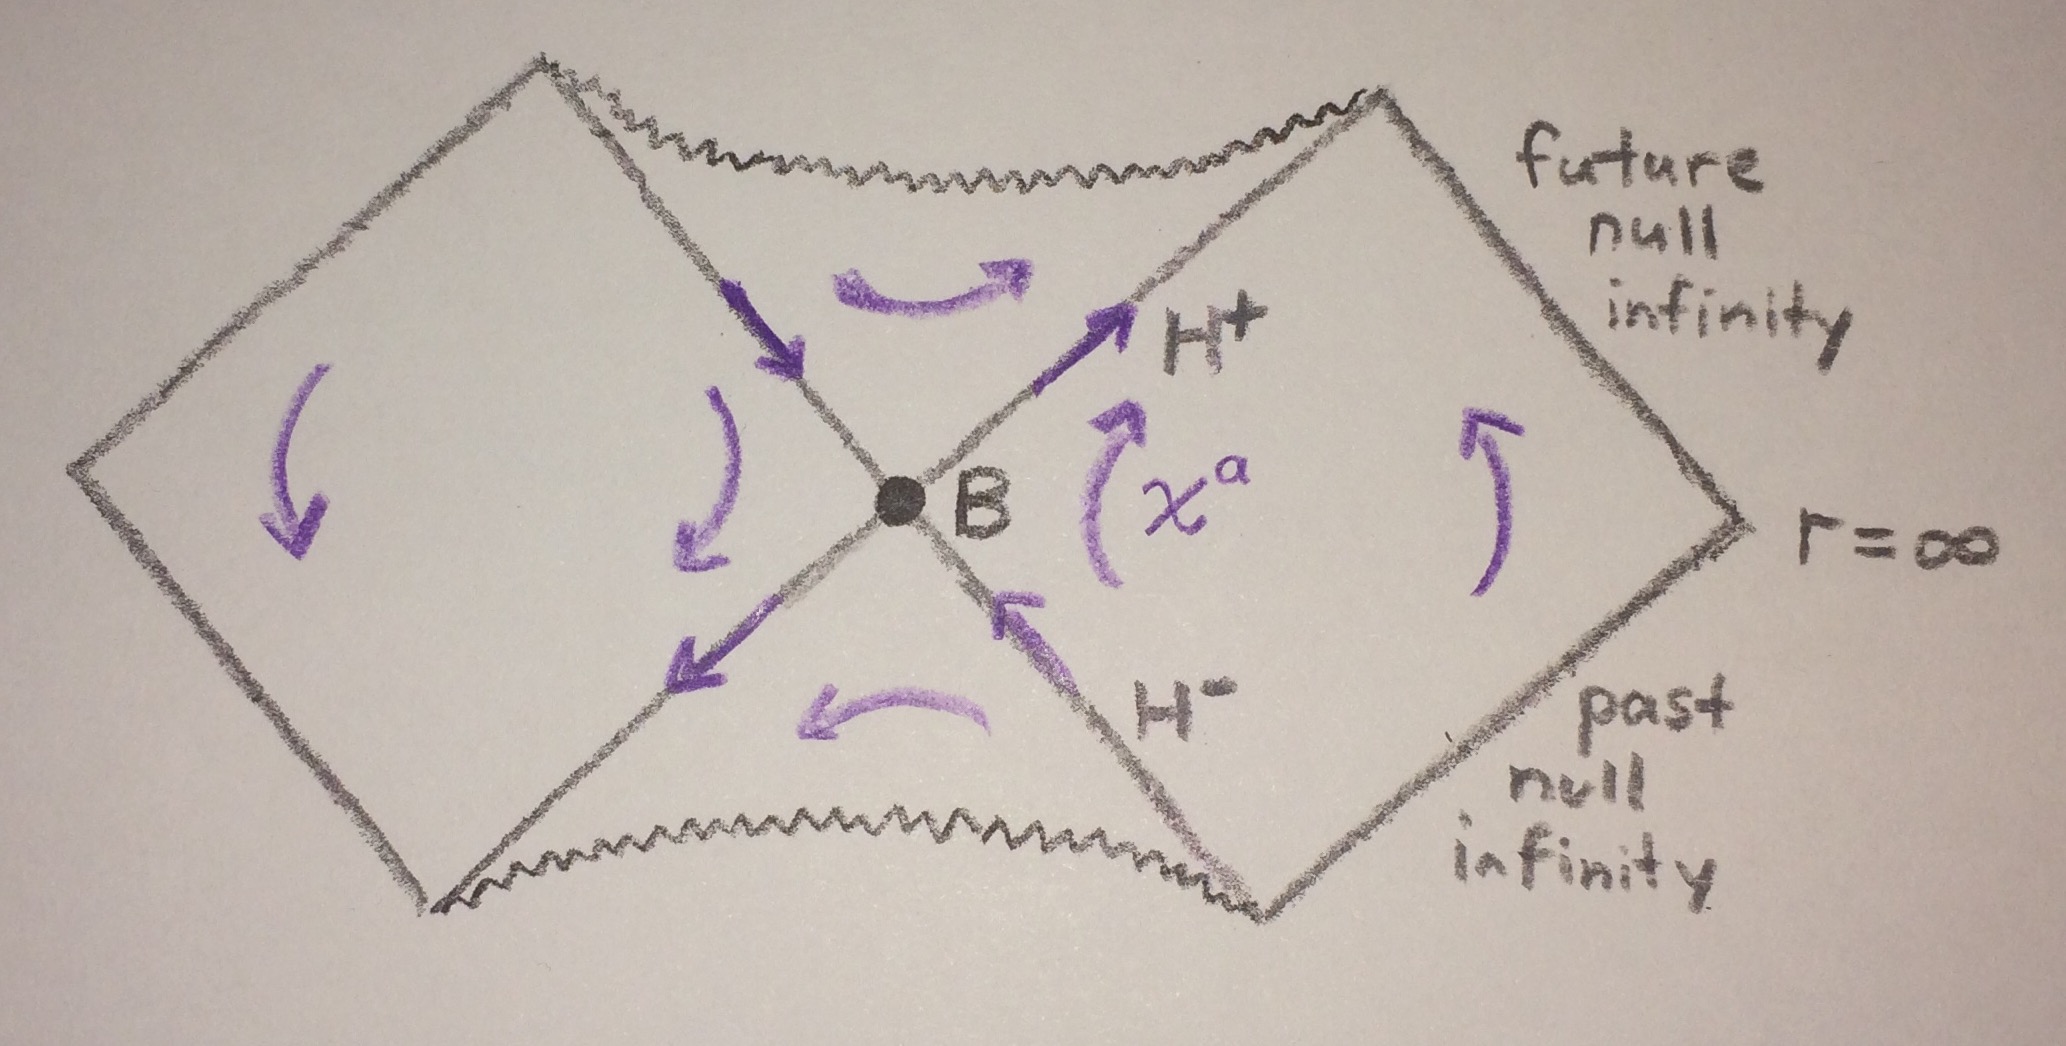 future
null
infinity
H⁺
χᵃ
B
r=∞
H⁻
past
null
infinity